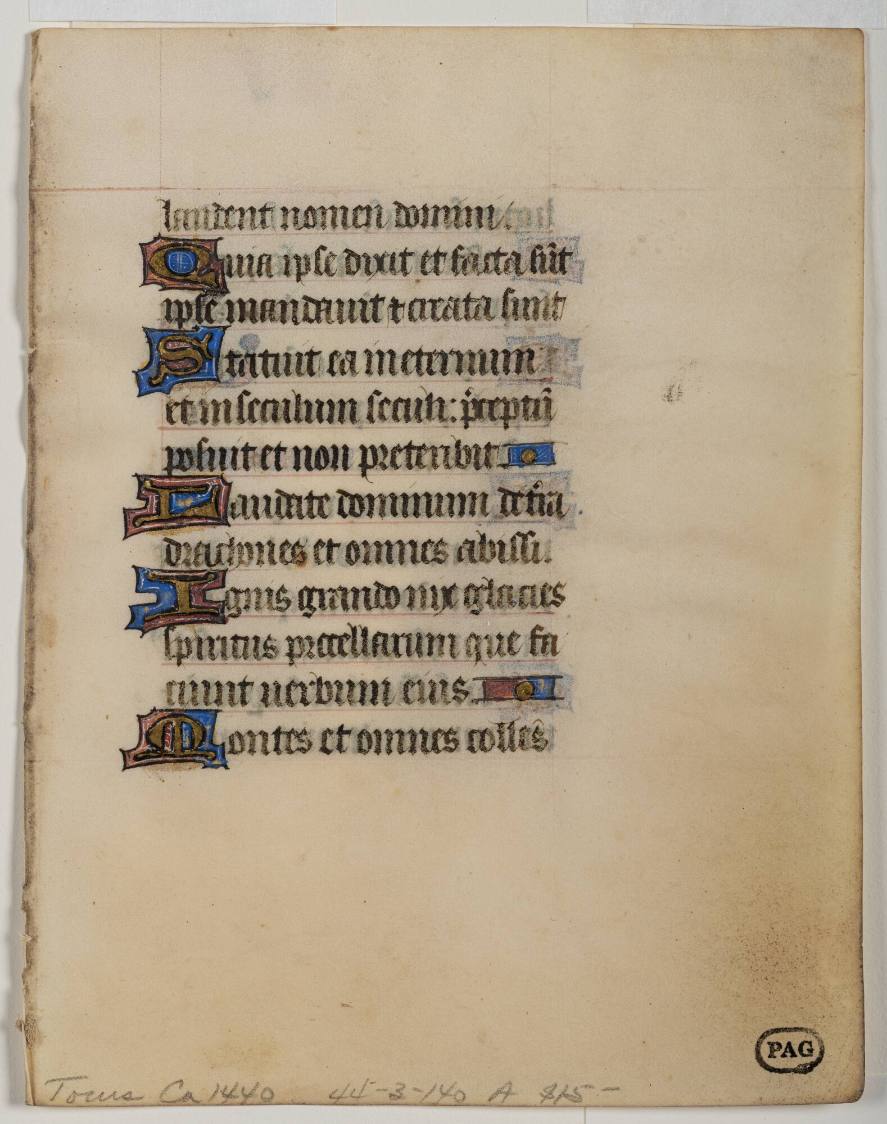 laudent nomen domini.
Quia ipse dixit et facta sūt
ipse mandauit & creata sunt
Statuit ea in eternum
et in seculum seculi: p̄ceptū
posuit et non preteribit
Laudate dominum de t̄ra
drachones et omnes abissi.
Ignis grando nix glacies
spiritus procellarum que fa
ciunt uerbum eius
Montes et omnes colles
PAG
Tours Ca 1440 44-3-140 A $15-